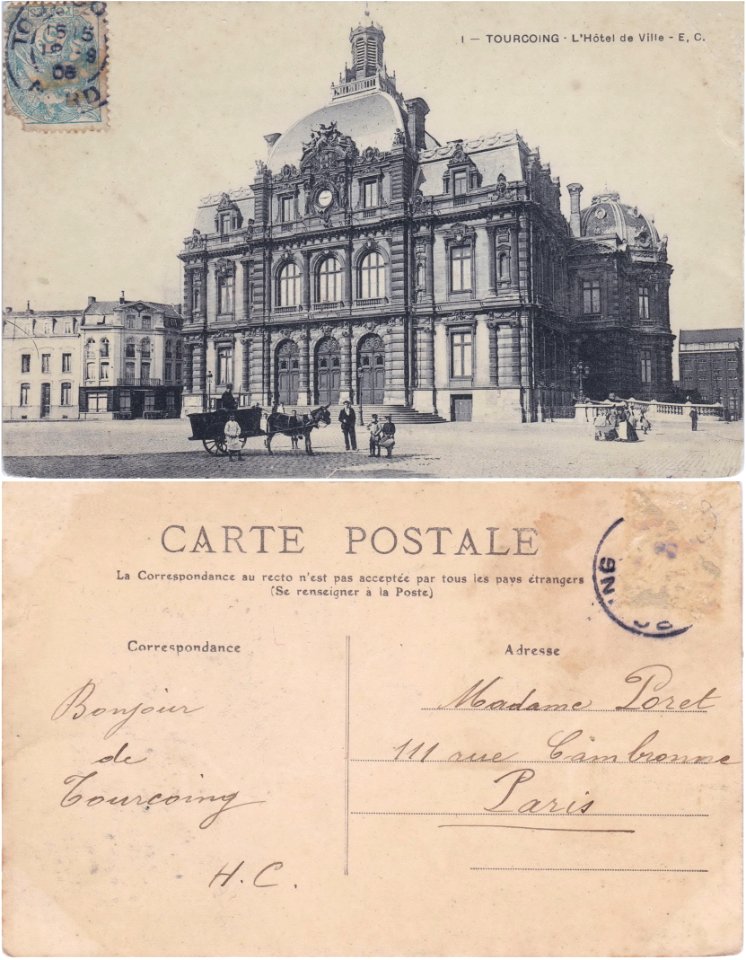 1 - TOURCOING - L'Hôtel de Ville - E, C.
TOURCO
15
08
NORD
CARTE POSTALE
La Correspondance au recto n'est pas acceptée par tous les pays étrangers
(Se renseigner à la Poste)
Correspondance
Bonjour
de
Tourcoing
H. C.
Adresse
Madame Poret
111 rue Cambronne
Paris